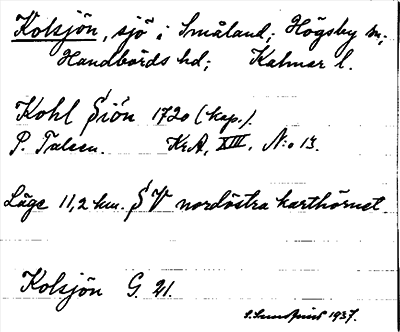 Kolsjön, sjö i Småland; Högsby sn;
Handbörds hd; Kalmar l.
Kohl Siön 1720 (kop.).
P. Talsen. KrA, XIII, N:o 13.
Läge 11,2 km. SV nordöstra karthörnet
Kolsjön G. 21.
1937.